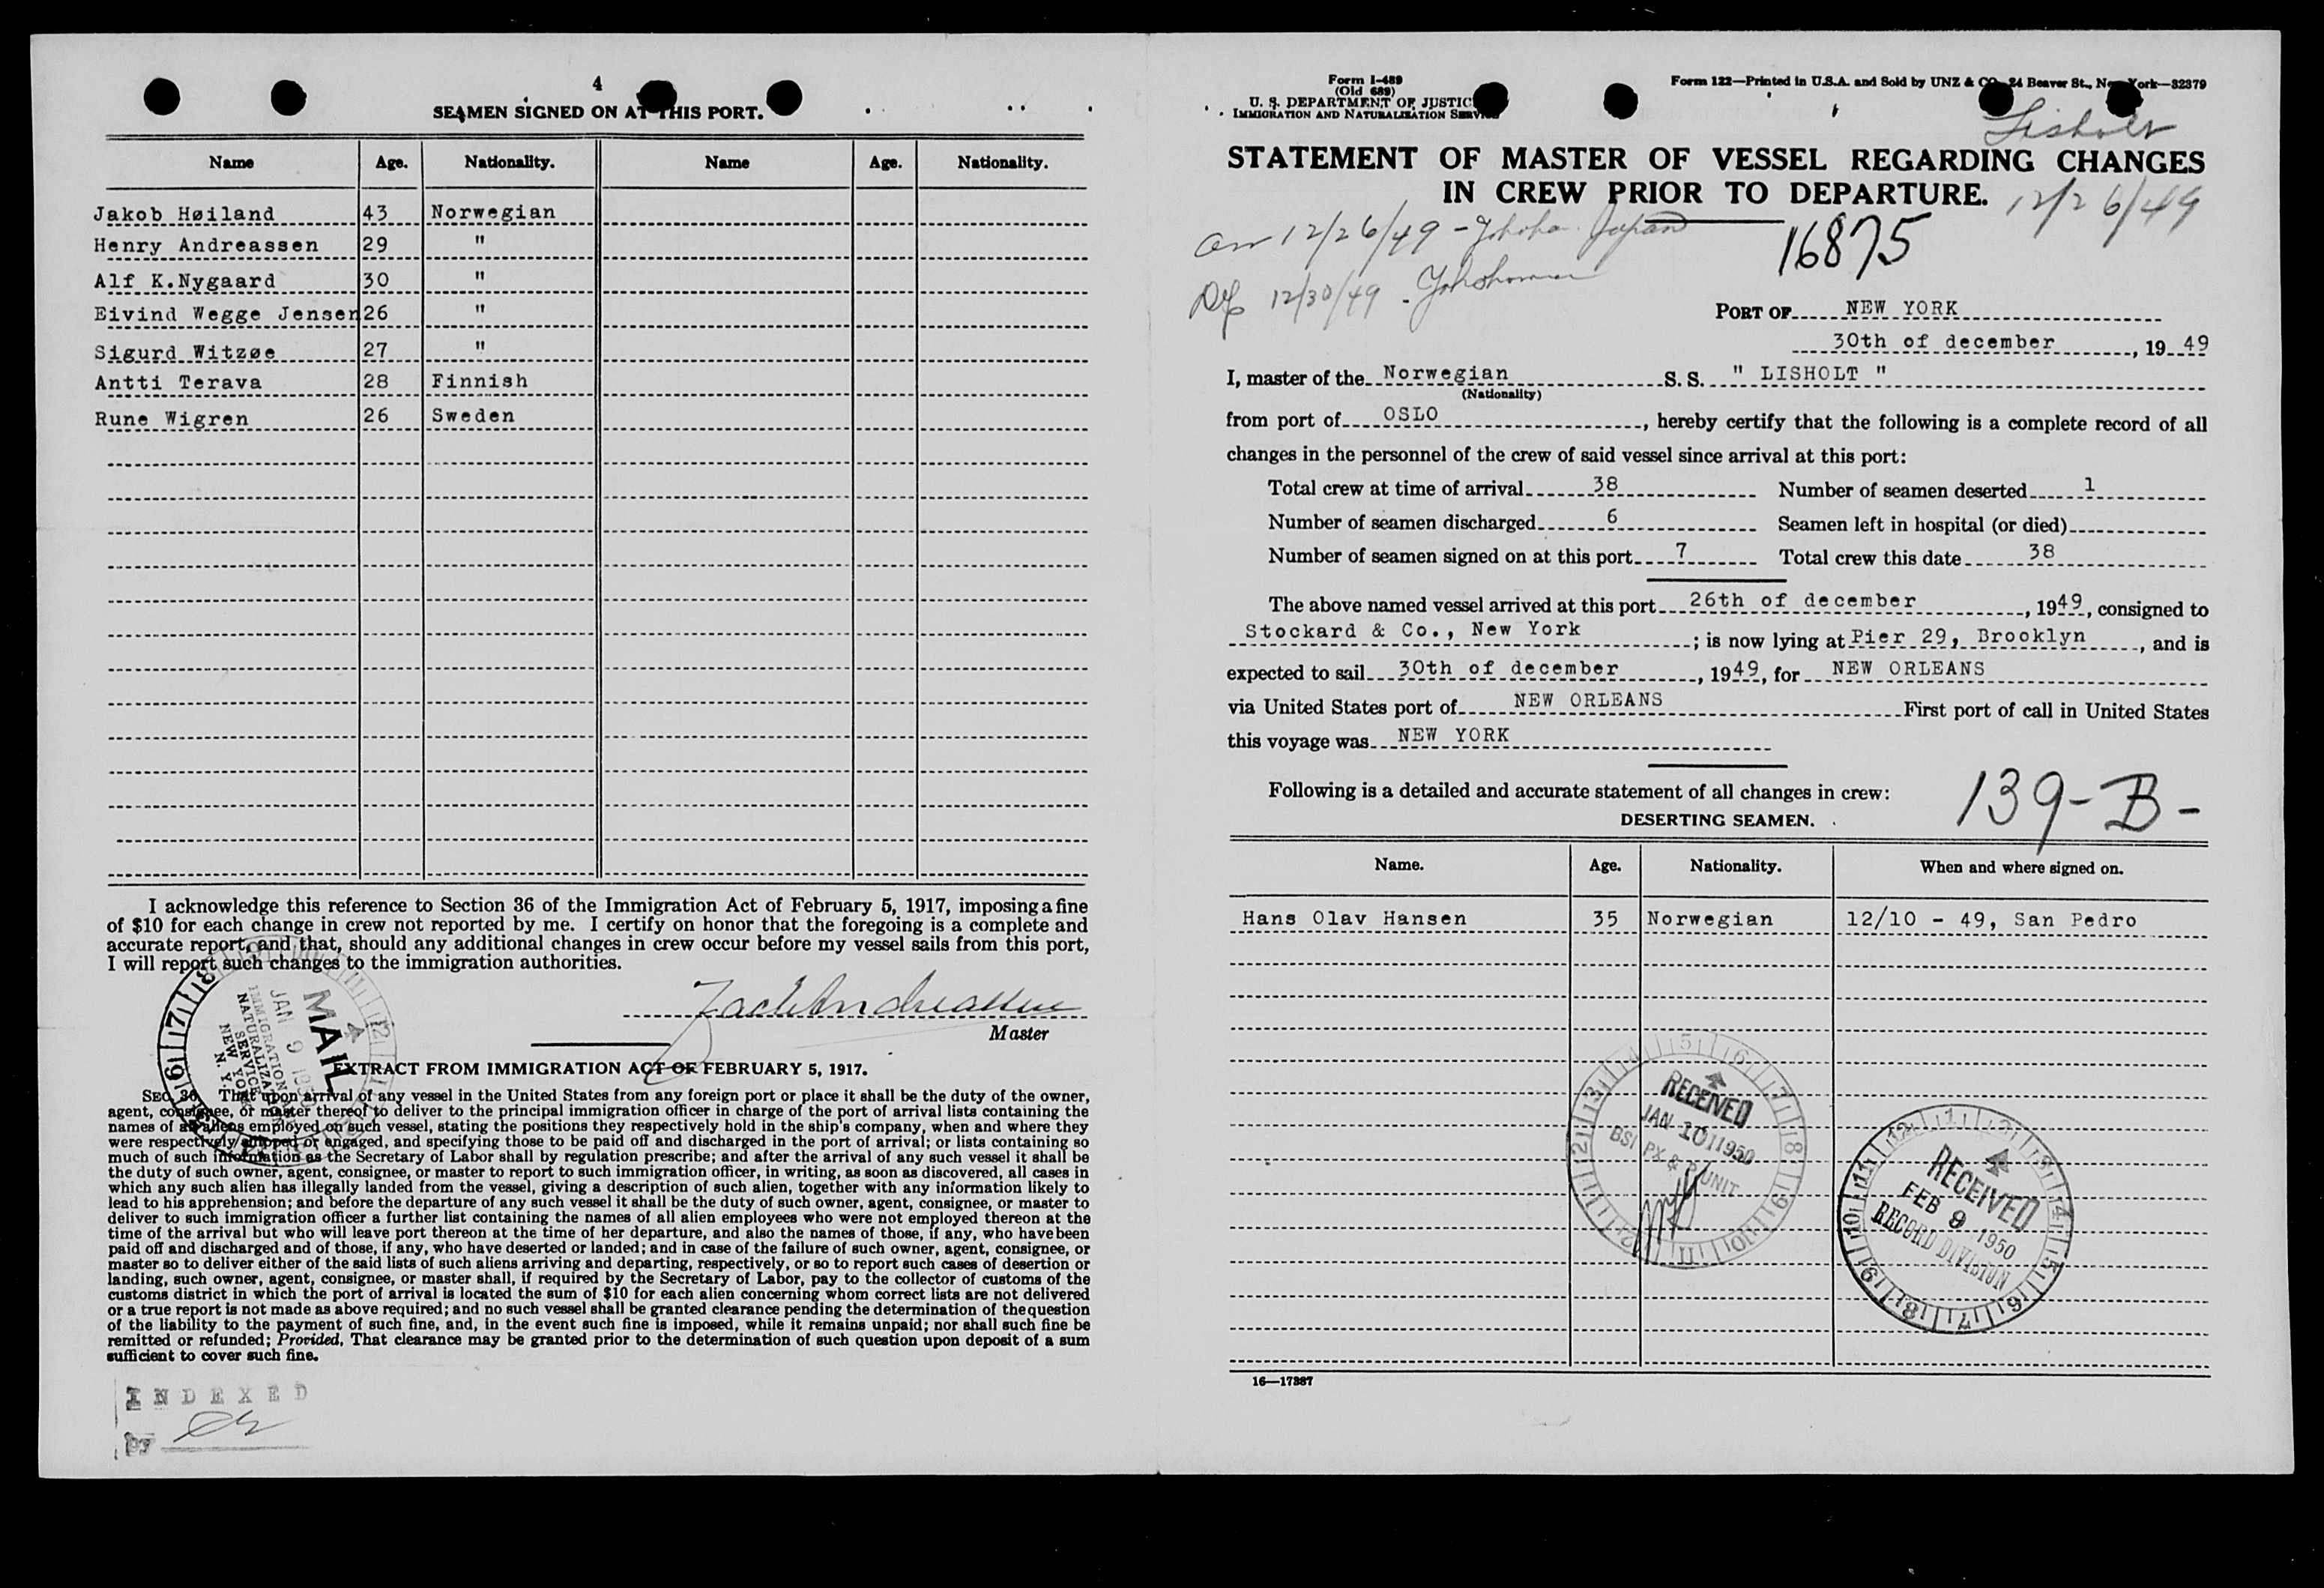 4
SEAMEN SIGNED ON AT THIS PORT.
Name Age. Nationality. Name Age. Nationality.
Jakob Høiland 43 Norwegian
Henry Andreassen 29 "
Alf K.Nygaard 30 "
Eivind Wegge Jensen 26 "
Sigurd Witzøe 27 "
Antti Terava 28 Finnish
Rune Wigren 26 Sweden
I acknowledge this reference to Section 36 of the Immigration Act of February 5, 1917, imposing a fine
of $10 for each change in crew not reported by me. I certify on honor that the foregoing is a complete and
accurate report, and that, should any additional changes in crew occur before my vessel sails from this port,
I will report such changes to the immigration authorities.
Master
MAIL
JAN 9 1950
IMMIGRATION
NATURALIZATION
SERVICE
NEW YORK
N. Y.
EXTRACT FROM IMMIGRATION ACT OF FEBRUARY 5, 1917.
SEC. 36. That upon arrival of any vessel in the United States from any foreign port or place it shall be the duty of the owner,
agent, consignee, or master thereof to deliver to the principal immigration officer in charge of the port of arrival lists containing the
names of all aliens employed on such vessel, stating the positions they respectively hold in the ship's company, when and where they
were respectively shipped or engaged, and specifying those to be paid off and discharged in the port of arrival; or lists containing so
much of such information as the Secretary of Labor shall by regulation prescribe; and after the arrival of any such vessel it shall be
the duty of such owner, agent, consignee, or master to report to such immigration officer, in writing, as soon as discovered, all cases in
which any such alien has illegally landed from the vessel, giving a description of such alien, together with any information likely to
lead to his apprehension; and before the departure of any such vessel it shall be the duty of such owner, agent, consignee, or master to
deliver to such immigration officer a further list containing the names of all alien employees who were not employed thereon at the
time of the arrival but who will leave port thereon at the time of her departure, and also the names of those, if any, who have been
paid off and discharged and of those, if any, who have deserted or landed; and in case of the failure of such owner, agent, consignee, or
master so to deliver either of the said lists of such aliens arriving and departing, respectively, or so to report such cases of desertion or
landing, such owner, agent, consignee, or master shall, if required by the Secretary of Labor, pay to the collector of customs of the
customs district in which the port of arrival is located the sum of $10 for each alien concerning whom correct lists are not delivered
or a true report is not made as above required; and no such vessel shall be granted clearance pending the determination of the question
of the liability to the payment of such fine, and, in the event such fine is imposed, while it remains unpaid; nor shall such fine be
remitted or refunded; Provided, That clearance may be granted prior to the determination of such question upon deposit of a sum
sufficient to cover such fine.
INDEXED
BY
Form I-489
(Old 689)
U. S. DEPARTMENT OF JUSTICE
IMMIGRATION AND NATURALIZATION SERVICE
Form 122—Printed in U.S.A. and Sold by UNZ & CO., 24 Beaver St., New York—32379
Lisholt
STATEMENT OF MASTER OF VESSEL REGARDING CHANGES
IN CREW PRIOR TO DEPARTURE.
12/26/49
Arr 12/26/49 - Japan
16875
Dep 12/30/49 - Yokohama
PORT OF NEW YORK
30th of december, 1949
I, master of the Norwegian S. S. " LISHOLT "
(Nationality)
from port of OSLO, hereby certify that the following is a complete record of all
changes in the personnel of the crew of said vessel since arrival at this port:
Total crew at time of arrival 38 Number of seamen deserted 1
Number of seamen discharged 6 Seamen left in hospital (or died)
Number of seamen signed on at this port 7 Total crew this date 38
The above named vessel arrived at this port 26th of december, 1949, consigned to
Stockard & Co., New York; is now lying at Pier 29, Brooklyn, and is
expected to sail 30th of december, 1949, for NEW ORLEANS
via United States port of NEW ORLEANS First port of call in United States
this voyage was NEW YORK
Following is a detailed and accurate statement of all changes in crew:
139-B-
DESERTING SEAMEN.
Name. Age. Nationality. When and where signed on.
Hans Olav Hansen 35 Norwegian 12/10 - 49, San Pedro
RECEIVED
JAN 10 1950
BSI PX & P UNIT
RECEIVED
FEB 9 1950
RECORD DIVISION
16—17387